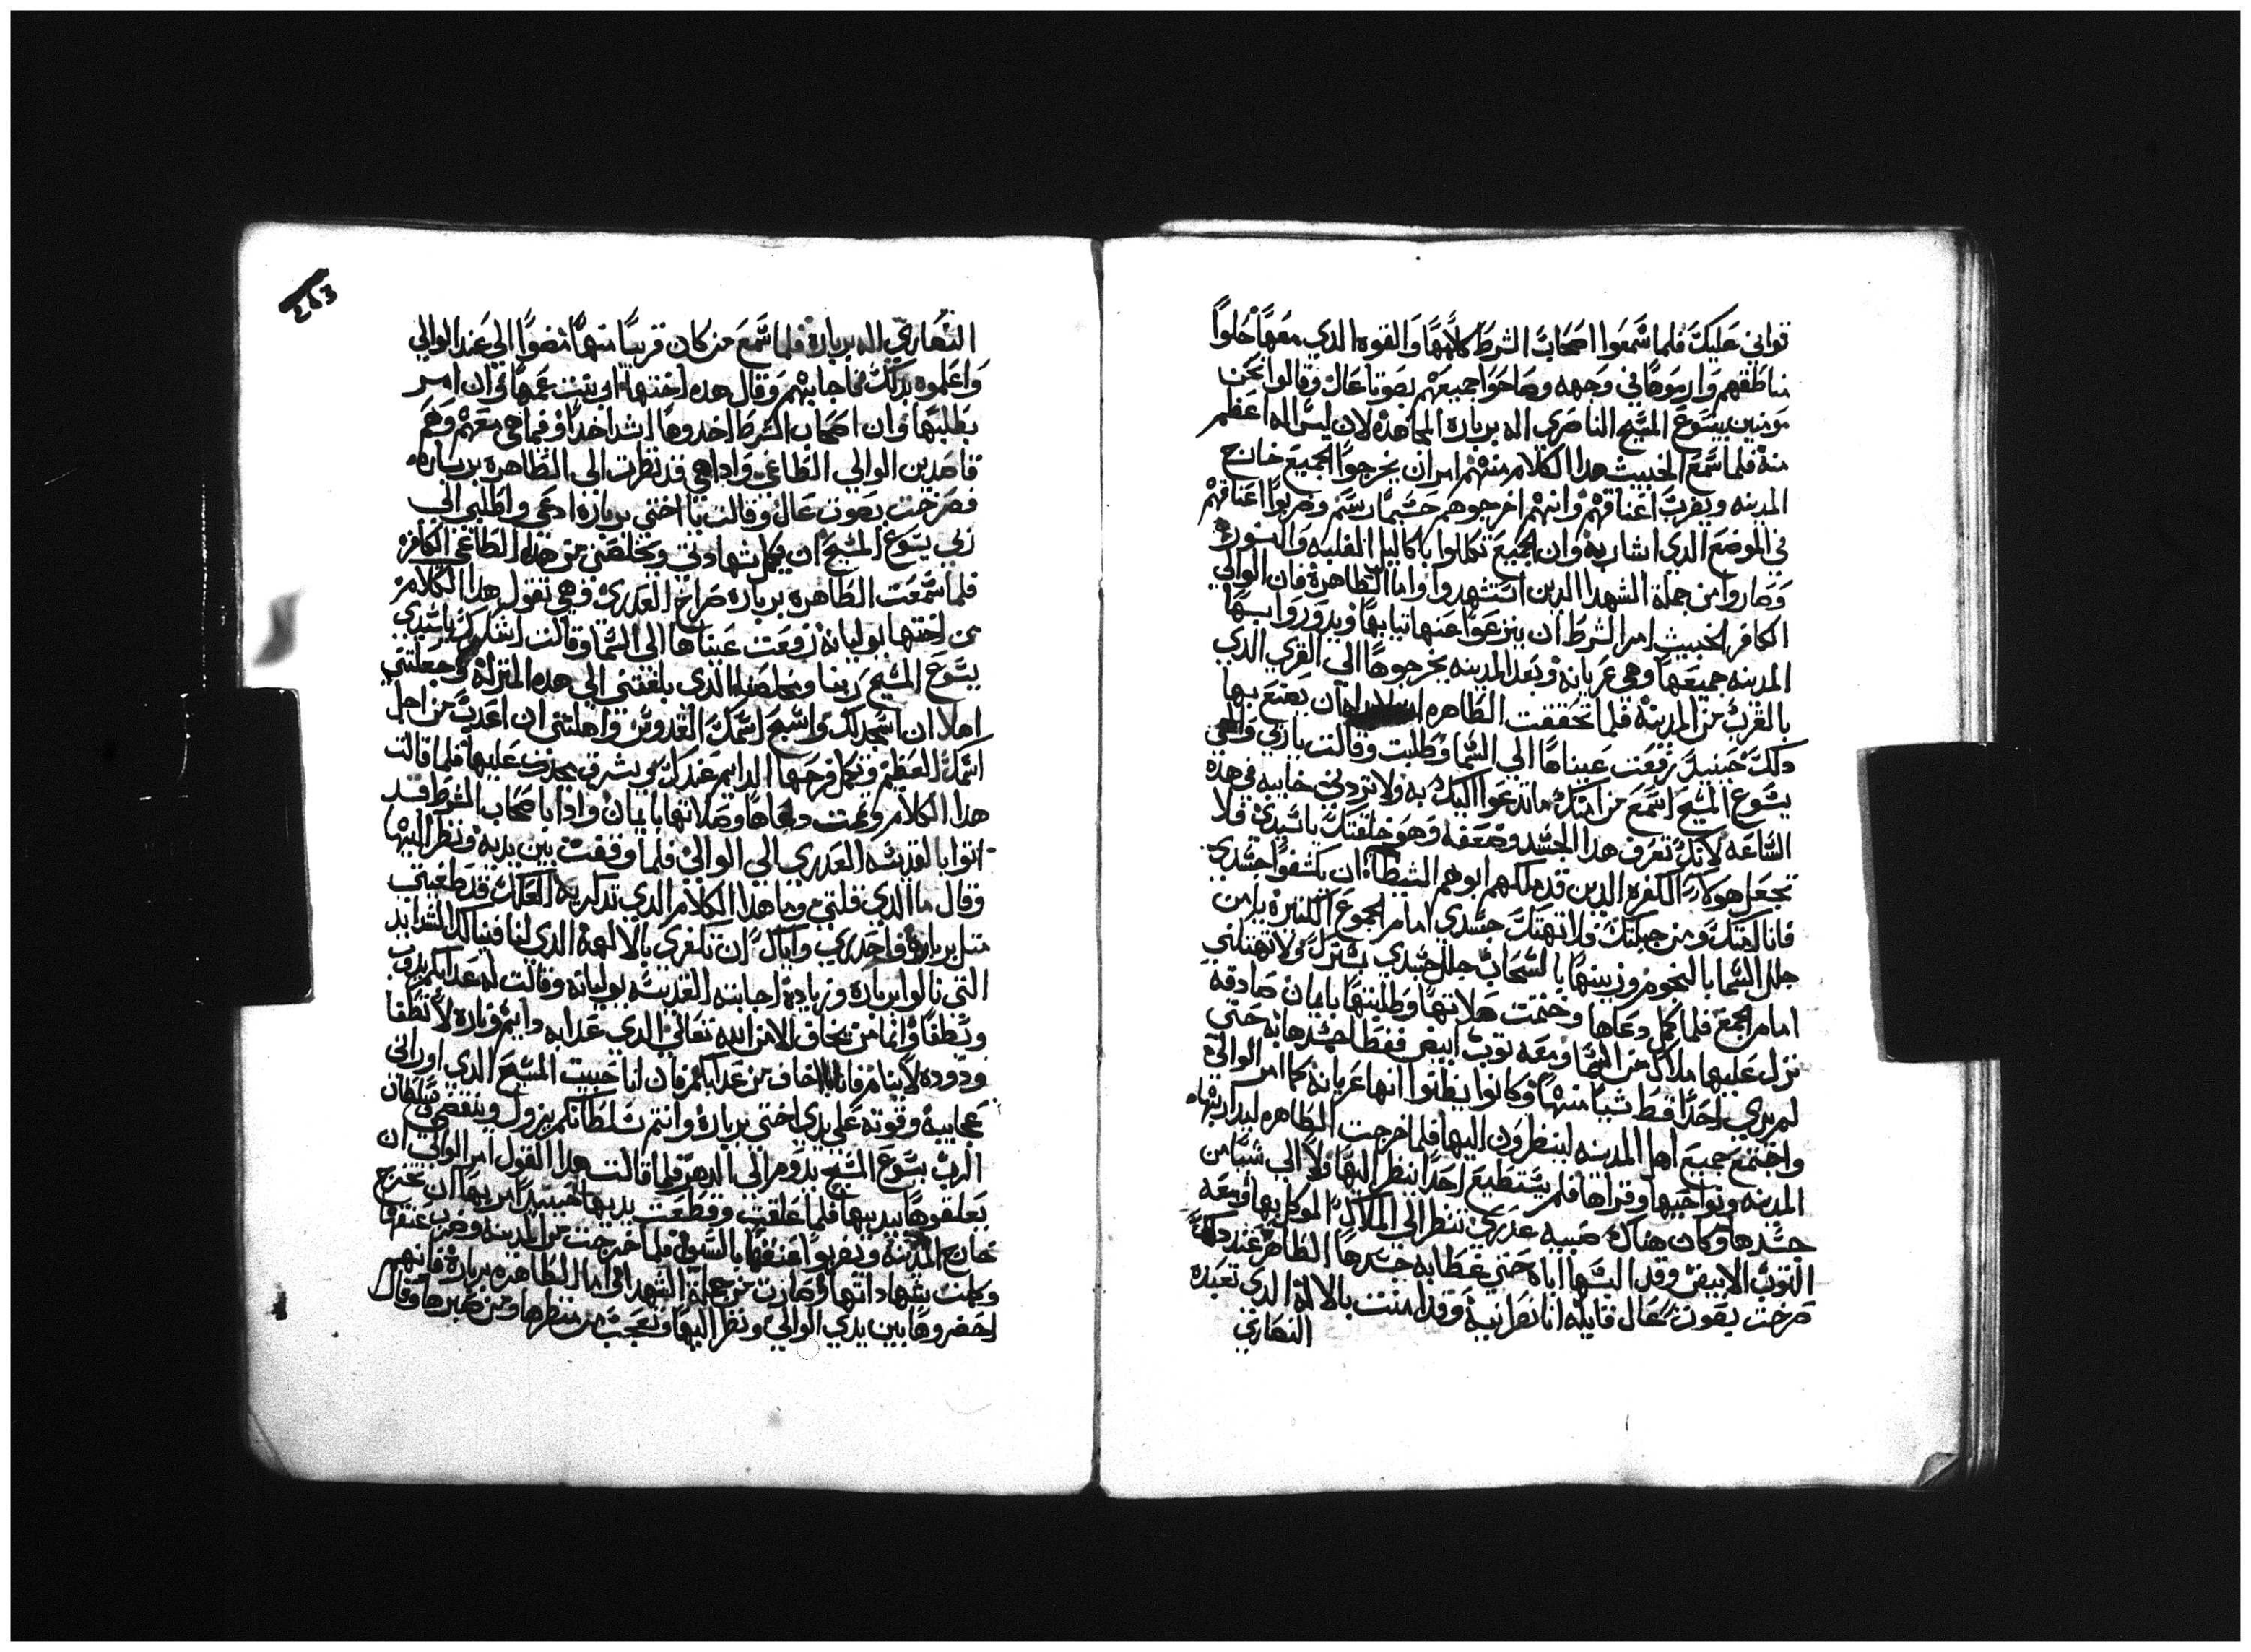 تواني عليك فلما سمعوا اصحاب الشرط كلامها والقوه الدي معها حلوا
مناطقهم وارموها في وجهه وصاحوا جميعهم بصوتا عال وقالوا نحن
مومنين بيسوع المسيح الناصري اله بربارة المجاهده لان ليس اله اعظم
منه فلما سمع الخبيث هدا الكلام منهم امر ان يخرجوا الجميع خارج
المدينه ويضرب اعناقهم وانهم اخرجوهم حسبما رسم وضربوا اعناقهم
في الموضع الدي اشار به وان الجميع تكللوا باكاليل الغلبه والنور
وصاروا من جملة الشهدا الدين استشهدوا واما الطاهرة فان الوالي
الكافر الخبيث امر الشرط ان ينزعوا عنها تيابها ويدوروا بها
المدينه جميعها وهي عريانه وبعد المدينه يخرجوها الي القري الدي
بالقرب من المدينه فلما تحققت الطاهره ان يصنع بها
دلك حينيد رفعت عيناها الي السما وطلبت وقالت ياربي والهي
يسوع المسيح اسمع من امتك ما تدعوا اليك به ولا تردني خايبه في هده
الساعه لانك تعرف هدا الجسد وضعفه وهو خلقتك ياسيدي فلا
تجعل هولاء الكفره الدين قد ملكهم ابوهم الشيطان ان يكشفوا جسدي
فانا امتك ومن جبلتك فلا تهتك جسدي امام الجموع الكتيرة يامن
جلل السما بالنجوم وزينها بالسحاب جلل جسدي بسترك ولا تهتكني
امام الجمع فلما كمل دعاها وختمت صلاتها وطلبتها بايمان صادقه
نزل عليها ملاك من السما ومعه توب ابيض فغطا جسدها به حتي
لم يري احدا قط شيا منها وكانوا يظنوا انها عريانه كما امر الوالي
واجتمع جميع اهل المدينه لينظرون اليها فلما خرجت الطاهره ليداربها
المدينه ونواحيها وقراها فلم يستطيع احدا ينظر اليها ولا الي شيا من
جسدها وكان هناك صبيه عدري تنظر الي الملاك الموكل بها ومعه
التوب الابيض وقد البسها اياه حتي غطا به جسدها الطاهر عند دلك
صرخت بصوت عال قايله انا نصرانيه وقد امنت بالاله الدي تعبده
النصاري
النصاري اله بربارة فلما سمع من كان قريبا منها مضوا الي عند الوالي
واعلموه بدلك فاجابهم وقال هده اختها اي بنت عمها وان امر
بطلبها وان اصحاب الشرط اخدوها اشد اخدا وفيما هي معهم وهم
قاصدين الوالي الطاغي وادا هي قد نظرت الي الطاهره برباره
فصرخت بصوت عال وقالت يا اختي برباره ادعي واطلبي الي
ربي يسوع المسيح ان يكمل شهادتي ويخلصني من هدا الطاغي الكافر
فلما سمعت الطاهره برباره صراخ العدري وهي تقول هدا الكلام
من اختها يوليانه رفعت عيناها الي السما وقالت اشكرك ياسيدي
يسوع المسيح ربنا ومخلصنا الدي بلغتني الي هده المنزله وجعلتني
اهلا ان اسجد لك واسبح اسمك القدوس واهلتني ان اعدب من اجل
اسمك العظيم وتكمل فرحها الدايم عندك بحدت عليها فلما قالت
هدا الكلام وتمت دعاها وصلاتها بايمان وادا باصحاب الشرط قد
اتوا بالقديسه العدري الي الوالي فلما وقفت بين يديه ونظر اليها
وقال ما الدي قلتي وما هدا الكلام الدي تدكريه لعلك قد طغيتي
متل برباره فاحدري واياك ان تكفري بالالهة الدي لنا فينالك الشدايد
التي نالوا برباره وزيادة اجابته القديسه يوليانه وقالت له عدابكم يدوب
ويطفا وانما من نخاف الا من الله تعالي الدي عدابه دايم وناره لا تطفا
ودوده لا ينام فانا لا اخاف من عدابكم فان انا حبيت المسيح الدي اوراني
عجايبه وقوته علي يدي اختي برباره وانتم سلطانكم يزول وينقضي وسلطان
الرب يسوع المسيح يدوم الي الدهر فلما قالت هدا القول امر الوالي ان
يعلقوها بيديها فلما علقت وقطعت يديها حينيد امر بها ان تخرج
خارج المدينه ويضربوا عنقها بالسيف فلما خرجت من المدينه وضرب عنقها
وكملت شهاداتها وصارت من جملة الشهدا واما الطاهره برباره فانهم
احضروها بين يدي الوالي ونظر اليها وتعجب من منظرها ومن صبرها وقال